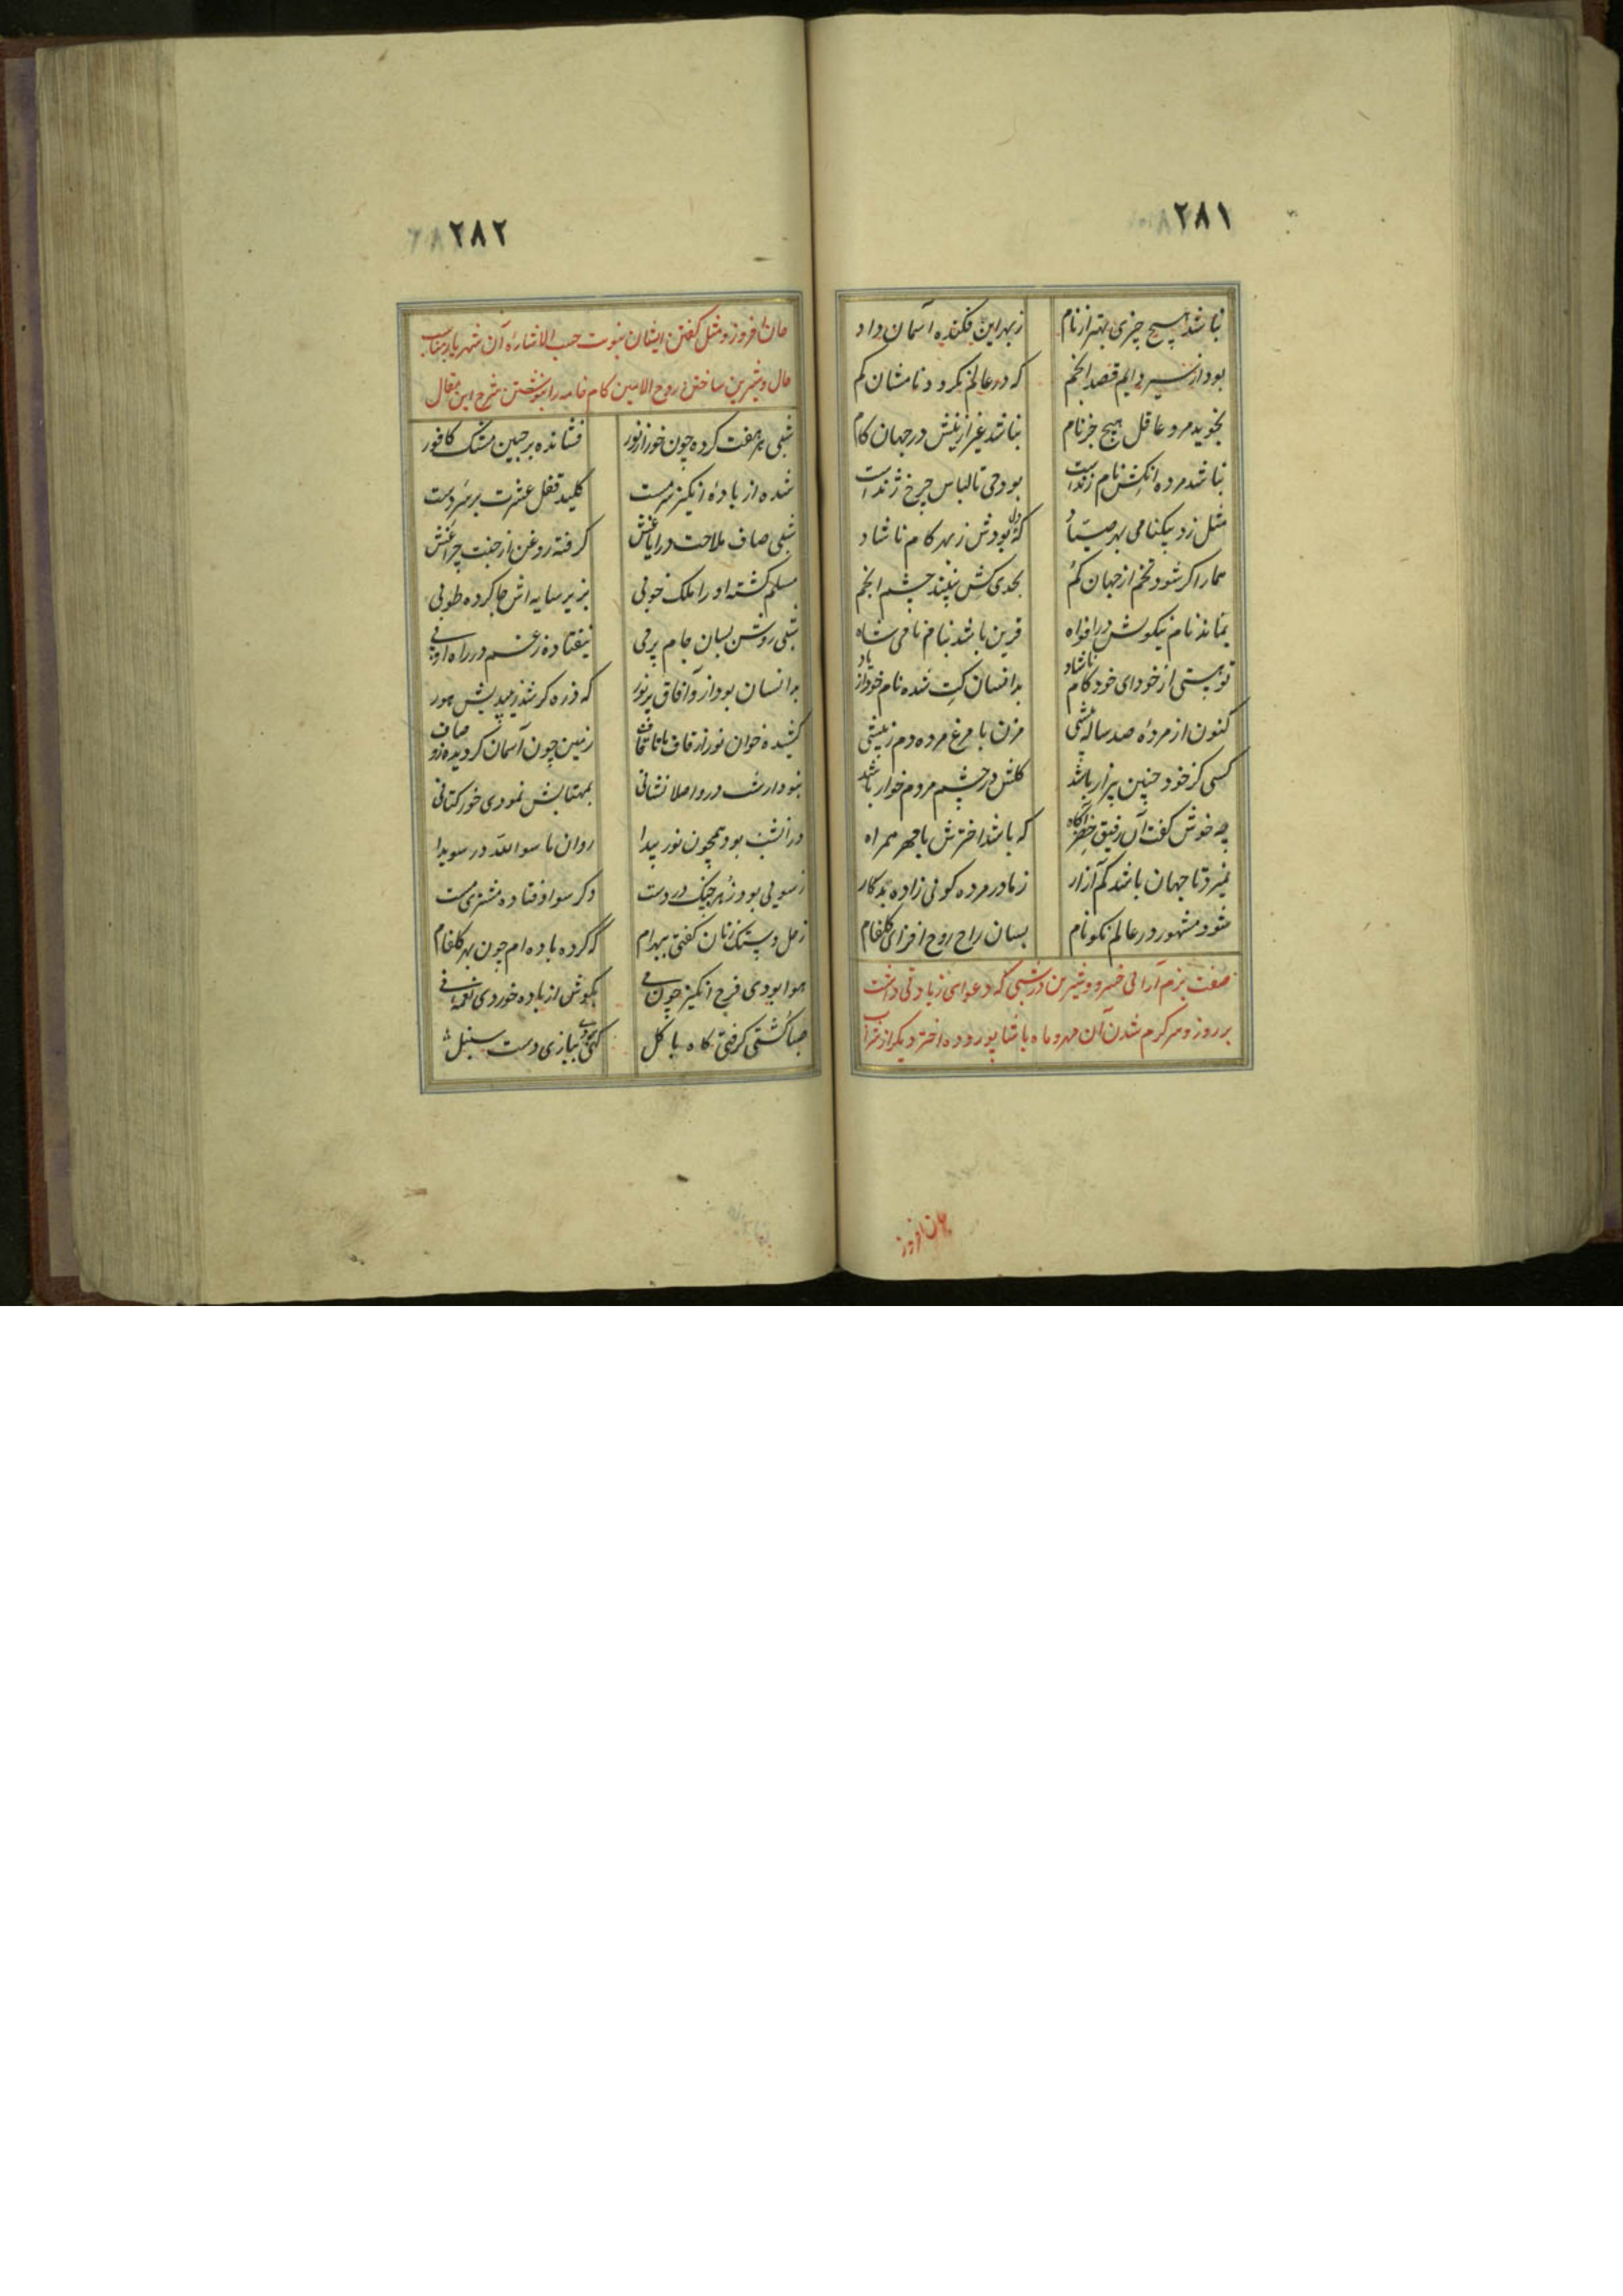 ۲۸۱
نباشد هیچ چیزی بهتر از نام
ز بهر این فکنده آسمان داد
بود از سیر دایم قصد انجم
که در عالم نگردد نامشان کم
نجوید مرد عاقل هیچ جز نام
نباشد غیر ازینش در جهان کام
نباشد مرده آنکش نام زنداست
بود حی تا لباس چرخ ژنداست
مثل زد نیکنامی بهر صیاد
که بودش دل ز بهر کام ناشاد
هما را گر شود تخم از جهان گم
بحدی کش نبیند چشم انجم
بماند نام نیکویش در افواه
قرین باشد بنام نامی شاه
تو هستی از خودای خود کام ناشاد
بدانسان کت شده نام خود از یاد
کنون از مرده صد ساله بیشی
مزن با مرغ مرده دم ز بیشی
کسی کز خود چنین بیزار باشد
گلش در چشم مردم خوار باشد
چه خوش گفت آن رفیق خضر آگاه
که باشد اخترش با مهر همراه
نمیرد تا جهان باشد کم آزار
ز مادر مرده گوئی زاده بدکار
شود مشهور در عالم نکو نام
بسان راح روح افزای گلفام
صفت بزم آرائی خسرو و شیرین در شبی که دعوای زیادتی داشت
بر روز و سر گرم شدن آن مهر و ماه با شاپور و ده اختر دیگر از شراب
جان افروز
۲۸۲
جان افروز و مثل گفتن ایشان بنوبت حسب الاشاره آن شهریار مناسب
حال و شیرین ساختن روح الامین کام خامه را بنوشتن شرح این مقال
شبی هر هفت کرده چون خور از نور
فشانده بر جبین مشک کافور
شده از باده انگیز سرمست
کلید قفل عشرت بر سر دست
شبی صاف ملاحت در ایاغش
گرفته روغن از جنت چراغش
مسلم گشته او را ملک خوبی
بزیر سایه اش جا کرده طوبی
شبی روشن بسان جام پر می
نیفتاده ز غم در راه او پی
بدانسان بود ازو آفاق پر نور
که ذره گر شدی میدیدش هور
کشیده خوان نور از قاف تا قاف
زمین چون آسمان گردیده زو صاف
نبود از شب درو اصلا نشانی
بمهتابش نمودی خور کتانی
در آنشب بود همچون نور پیدا
روان ما سوا لله در سویدا
ز سوئی بود زهره چنگ در دست
دگر سو اوفتاده مشتری مست
زحل دستک زنان گفتی ببهرام
که کرده باده ام چون بهر گلفام
هوا بودی فرح انگیز چون می
بگوش از باده خوردی نغمه نی
صبا کشتی گرفتی گاه با گل
گهی بودی ببازی دست سنبل